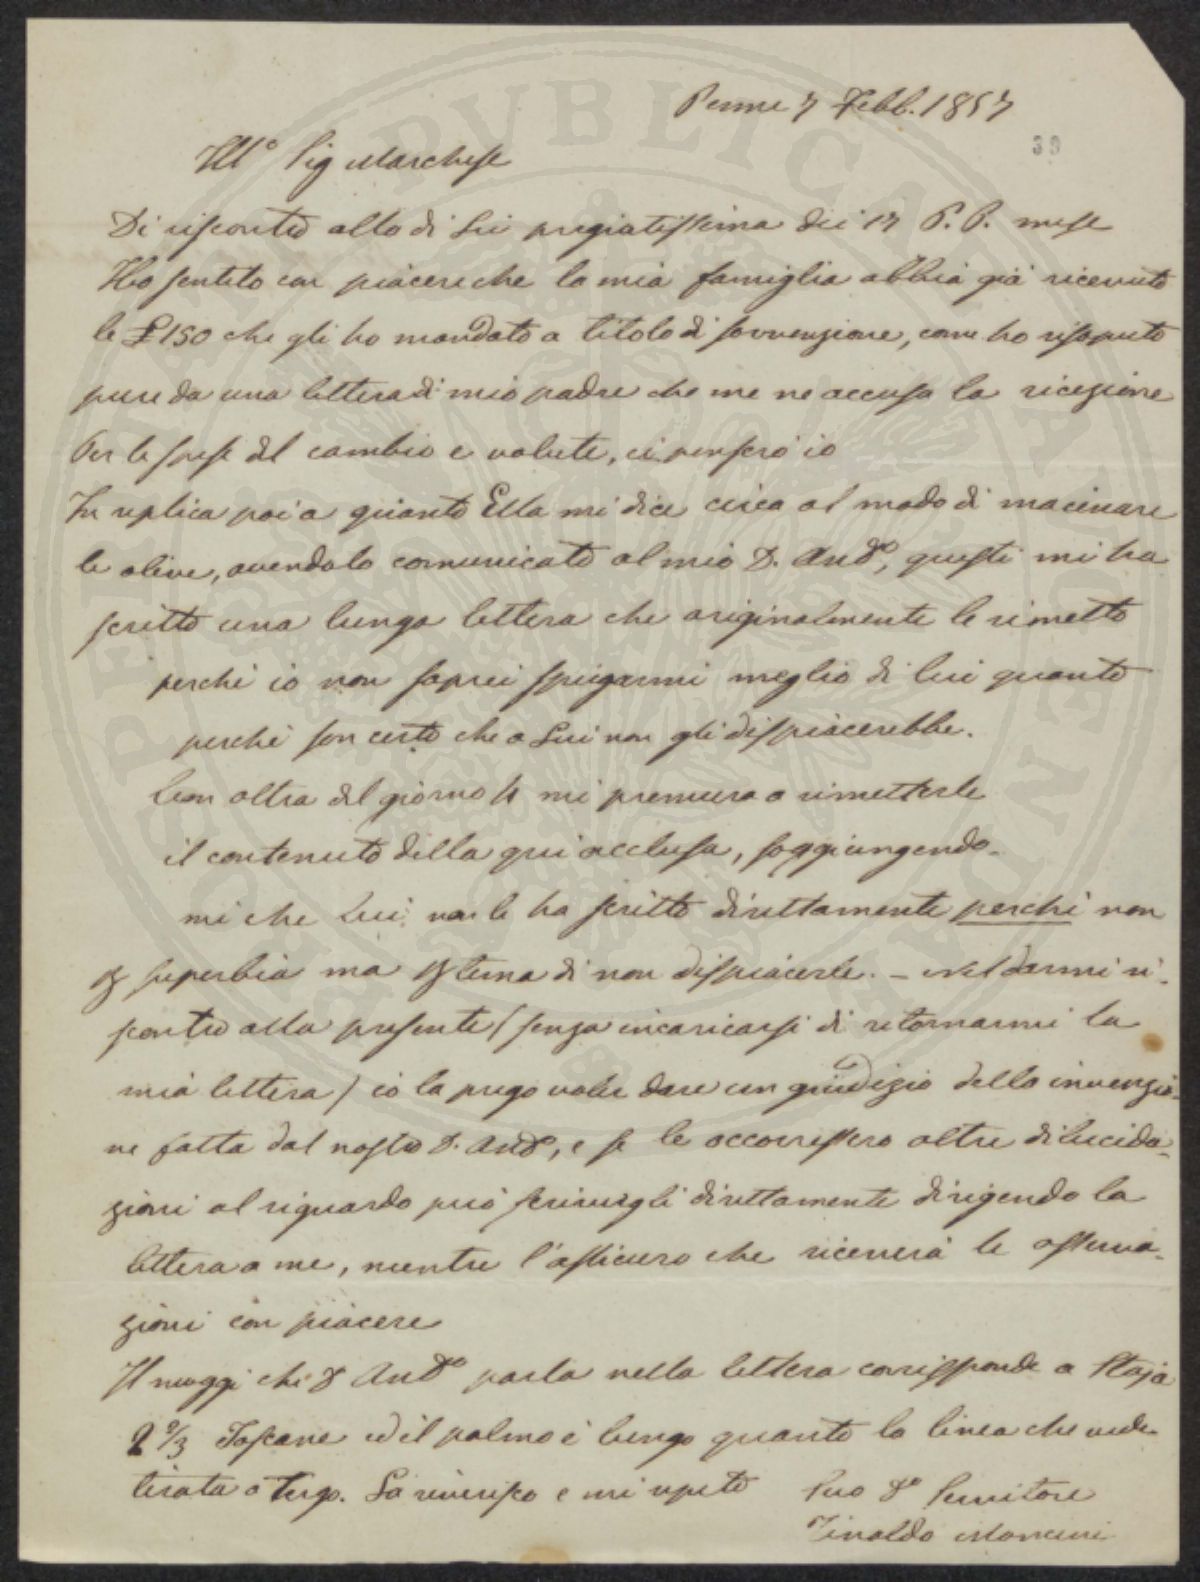 Penne 7 Febb. 1857
39
Ill.º Sig Marchese
Di riscontro alla di Lei pregiatissima dei 17 P. P. mese
Ho sentito con piacere che la mia famiglia abbia già ricevuto
le £ 150 che gli ho mandato a titolo di sovvenzione, come ho risaputo
pure da una lettera di mio padre che me ne accusa la ricezione
Per le spese del cambio e valute, ci penserò io
In replica poi a quanto Ella mi dice circa al modo di macinare
le olive, avendolo comunicato al mio D. Andª, questi mi ha
scritto una lunga lettera che originalmente le rimetto
perché io non saprei spiegarmi meglio di lui quanto
perché son certo che a Lei non gli dispiacerebbe.
Con altra del giorno mi premura a rimetterle
il contenuto della qui acclusa, soggiungendo-
mi che Lui non le ha scritto direttamente perché non
p superbia ma p tema di non dispiacerle. – Nel darmi ri-
scontro alla presente (senza incaricarsi di ritornarmi la
mia lettera) io la prego voler dare un giudizio della invenzio-
ne fatta dal nostro D. Andª, e se le occorressero altre dilucida-
zioni al riguardo può scrivergli direttamente dirigendo la
lettera a me, mentre l'assicuro che riceverà le osserva-
zioni con piacere
Il moggi che D Andª parla nella lettera corrisponde a Staja
2 2/3 Toscane ed il palmo è lungo quanto la linea che vede
tirata a tergo. La riverisco e mi ripeto Suo D.º Servitore
Tinaldo Mancini